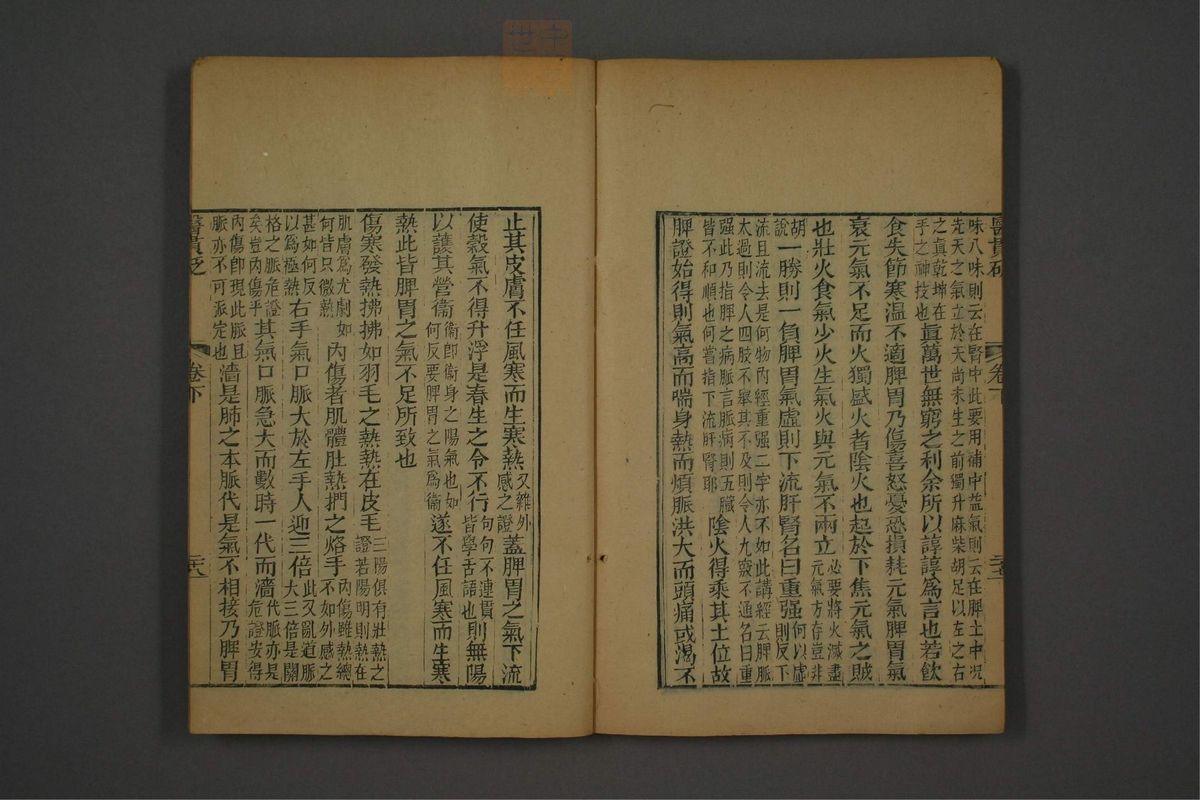 味八味則云在腎中此要用補中益氣則云在脾土中况
先天之氣立於天尚未生之前獨升麻柴胡足以左之右
之眞乾坤在手之神技也眞萬世無窮之利余所以諄諄爲言也若飲
食失節寒温不適脾胃乃傷喜怒憂恐損耗元氣脾胃氣
衰元氣不足而火獨盛火者陰火也起於下焦元氣之賊
也壯火食氣少火生氣火與元氣不兩立必要將火滅盡元氣方存豈非
胡說一勝則一負脾胃氣虛則下流肝腎名曰重强何以虛則反下
流且流去是何物内經重强二字亦不如此講經云脾脈
太過則令人四肢不舉其不及則令人九竅不通名曰重
强此乃指脾之病脈言脈病則五臟皆不和順也何嘗指下流肝腎耶陰火得乘其土位故
脾證始得則氣高而喘身熱而煩脈洪大而頭痛或渴不
醫貫砭 卷下
止其皮膚不任風寒而生寒熱又雜外感之證蓋脾胃之氣下流
使穀氣不得升浮是春生之令不行句句不連貫皆學舌語也則無陽
以護其營衞衞卽衞身之陽氣也如何反要脾胃之氣爲衞遂不任風寒而生寒
熱此皆脾胃之氣不足所致也
傷寒發熱拂拂如羽毛之熱熱在皮毛三陽俱有壯熱之證若陽明則熱在
肌膚爲尤劇如何皆只微熱内傷者肌體壯熱捫之烙手内傷雖熱總不如外感之
甚如何反以爲極熱右手氣口脈大於左手人迎三倍此又亂道脈大三倍是關
格之脈危證矣豈内傷乎其氣口脈急大而數時一代而濇代脈亦是危證豈得
内傷卽現此脈且脈亦不可派定也濇是肺之本脈代是氣不相接乃脾胃
醫貫砭 卷下 二十八